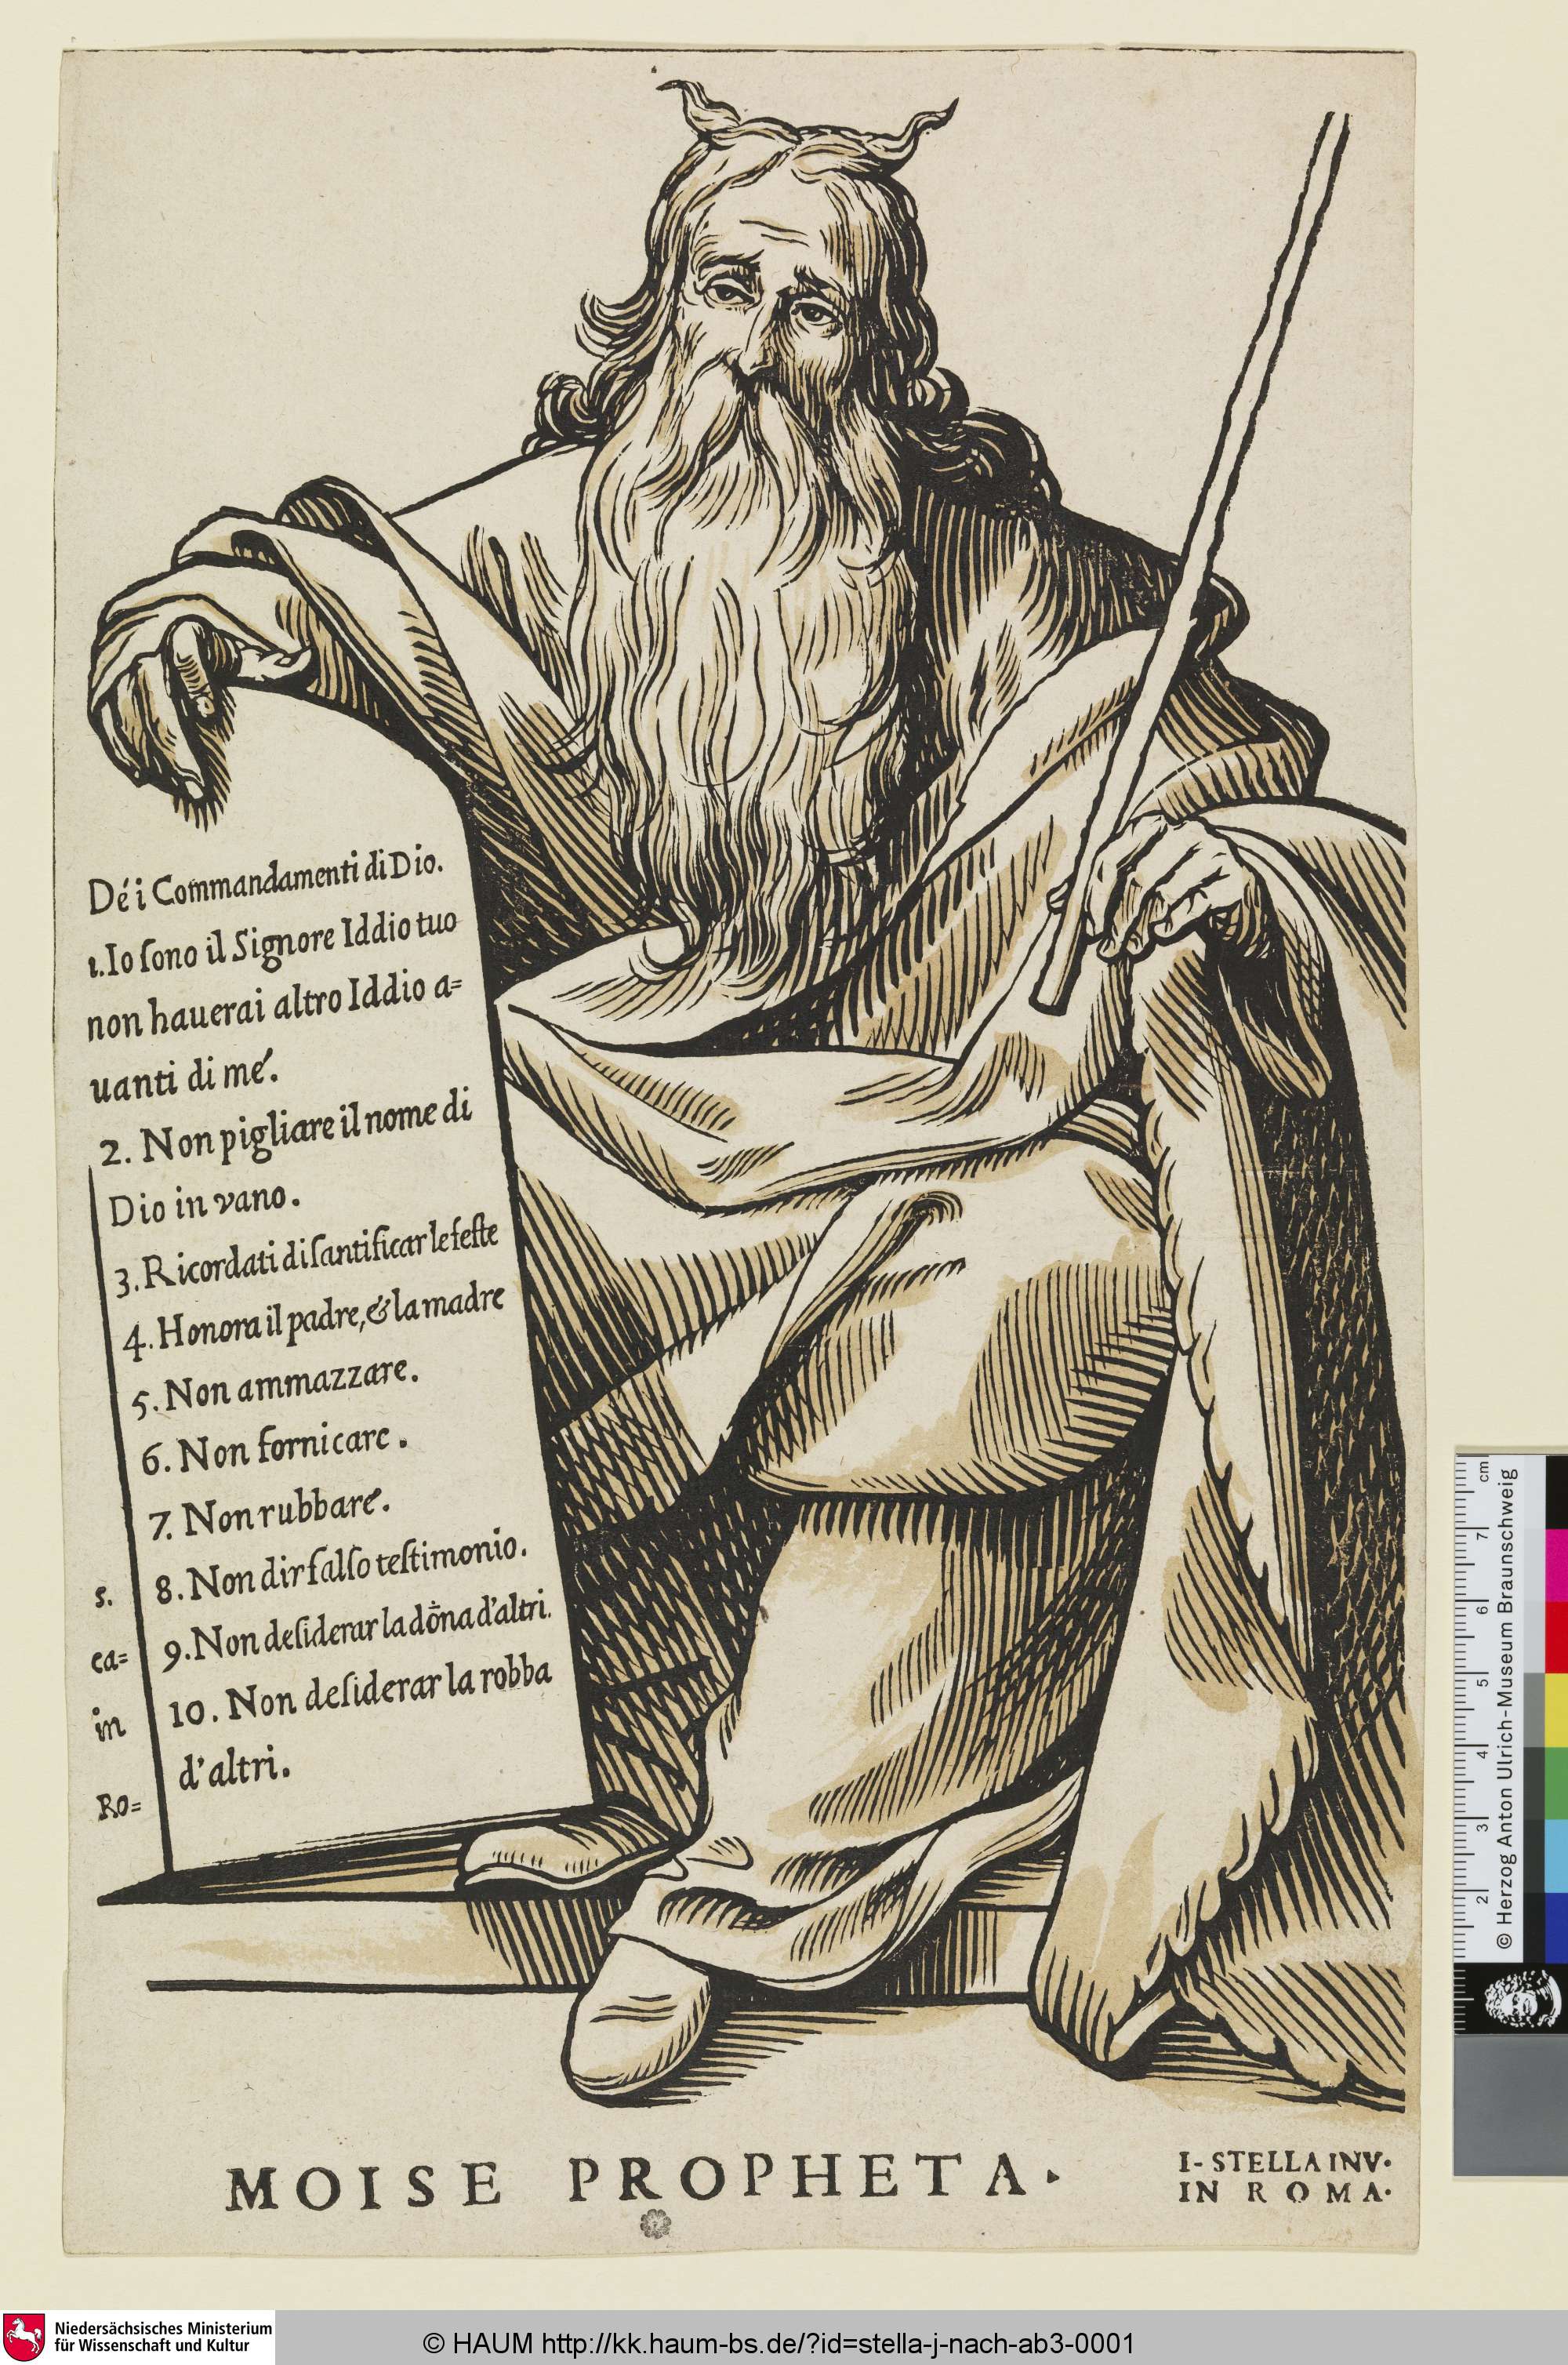 Dé i Commandamenti di Dio.
1. Io ſono il Signore Iddio tuo
non hauerai altro Iddio a=
uanti di mé.
2. Non pigliare il nome di
Dio in vano.
3. Ricordati di ſantificar le feſte
4. Honora il padre, & la madre
5. Non ammazzare.
6. Non fornicare.
7. Non rubbare.
8. Non dir falſo teſtimonio.
9. Non deſiderar la dōna d'altri.
10. Non deſiderar la robba
d'altri.
s.
ca=
in
Ro=
MOISE PROPHETA.
I-STELLA INV.
IN ROMA.
cm 7 6 5 4 3 2
© Herzog Anton Ulrich-Museum Braunschweig
Niedersächsisches Ministerium
für Wissenschaft und Kultur
© HAUM http://kk.haum-bs.de/?id=stella-j-nach-ab3-0001